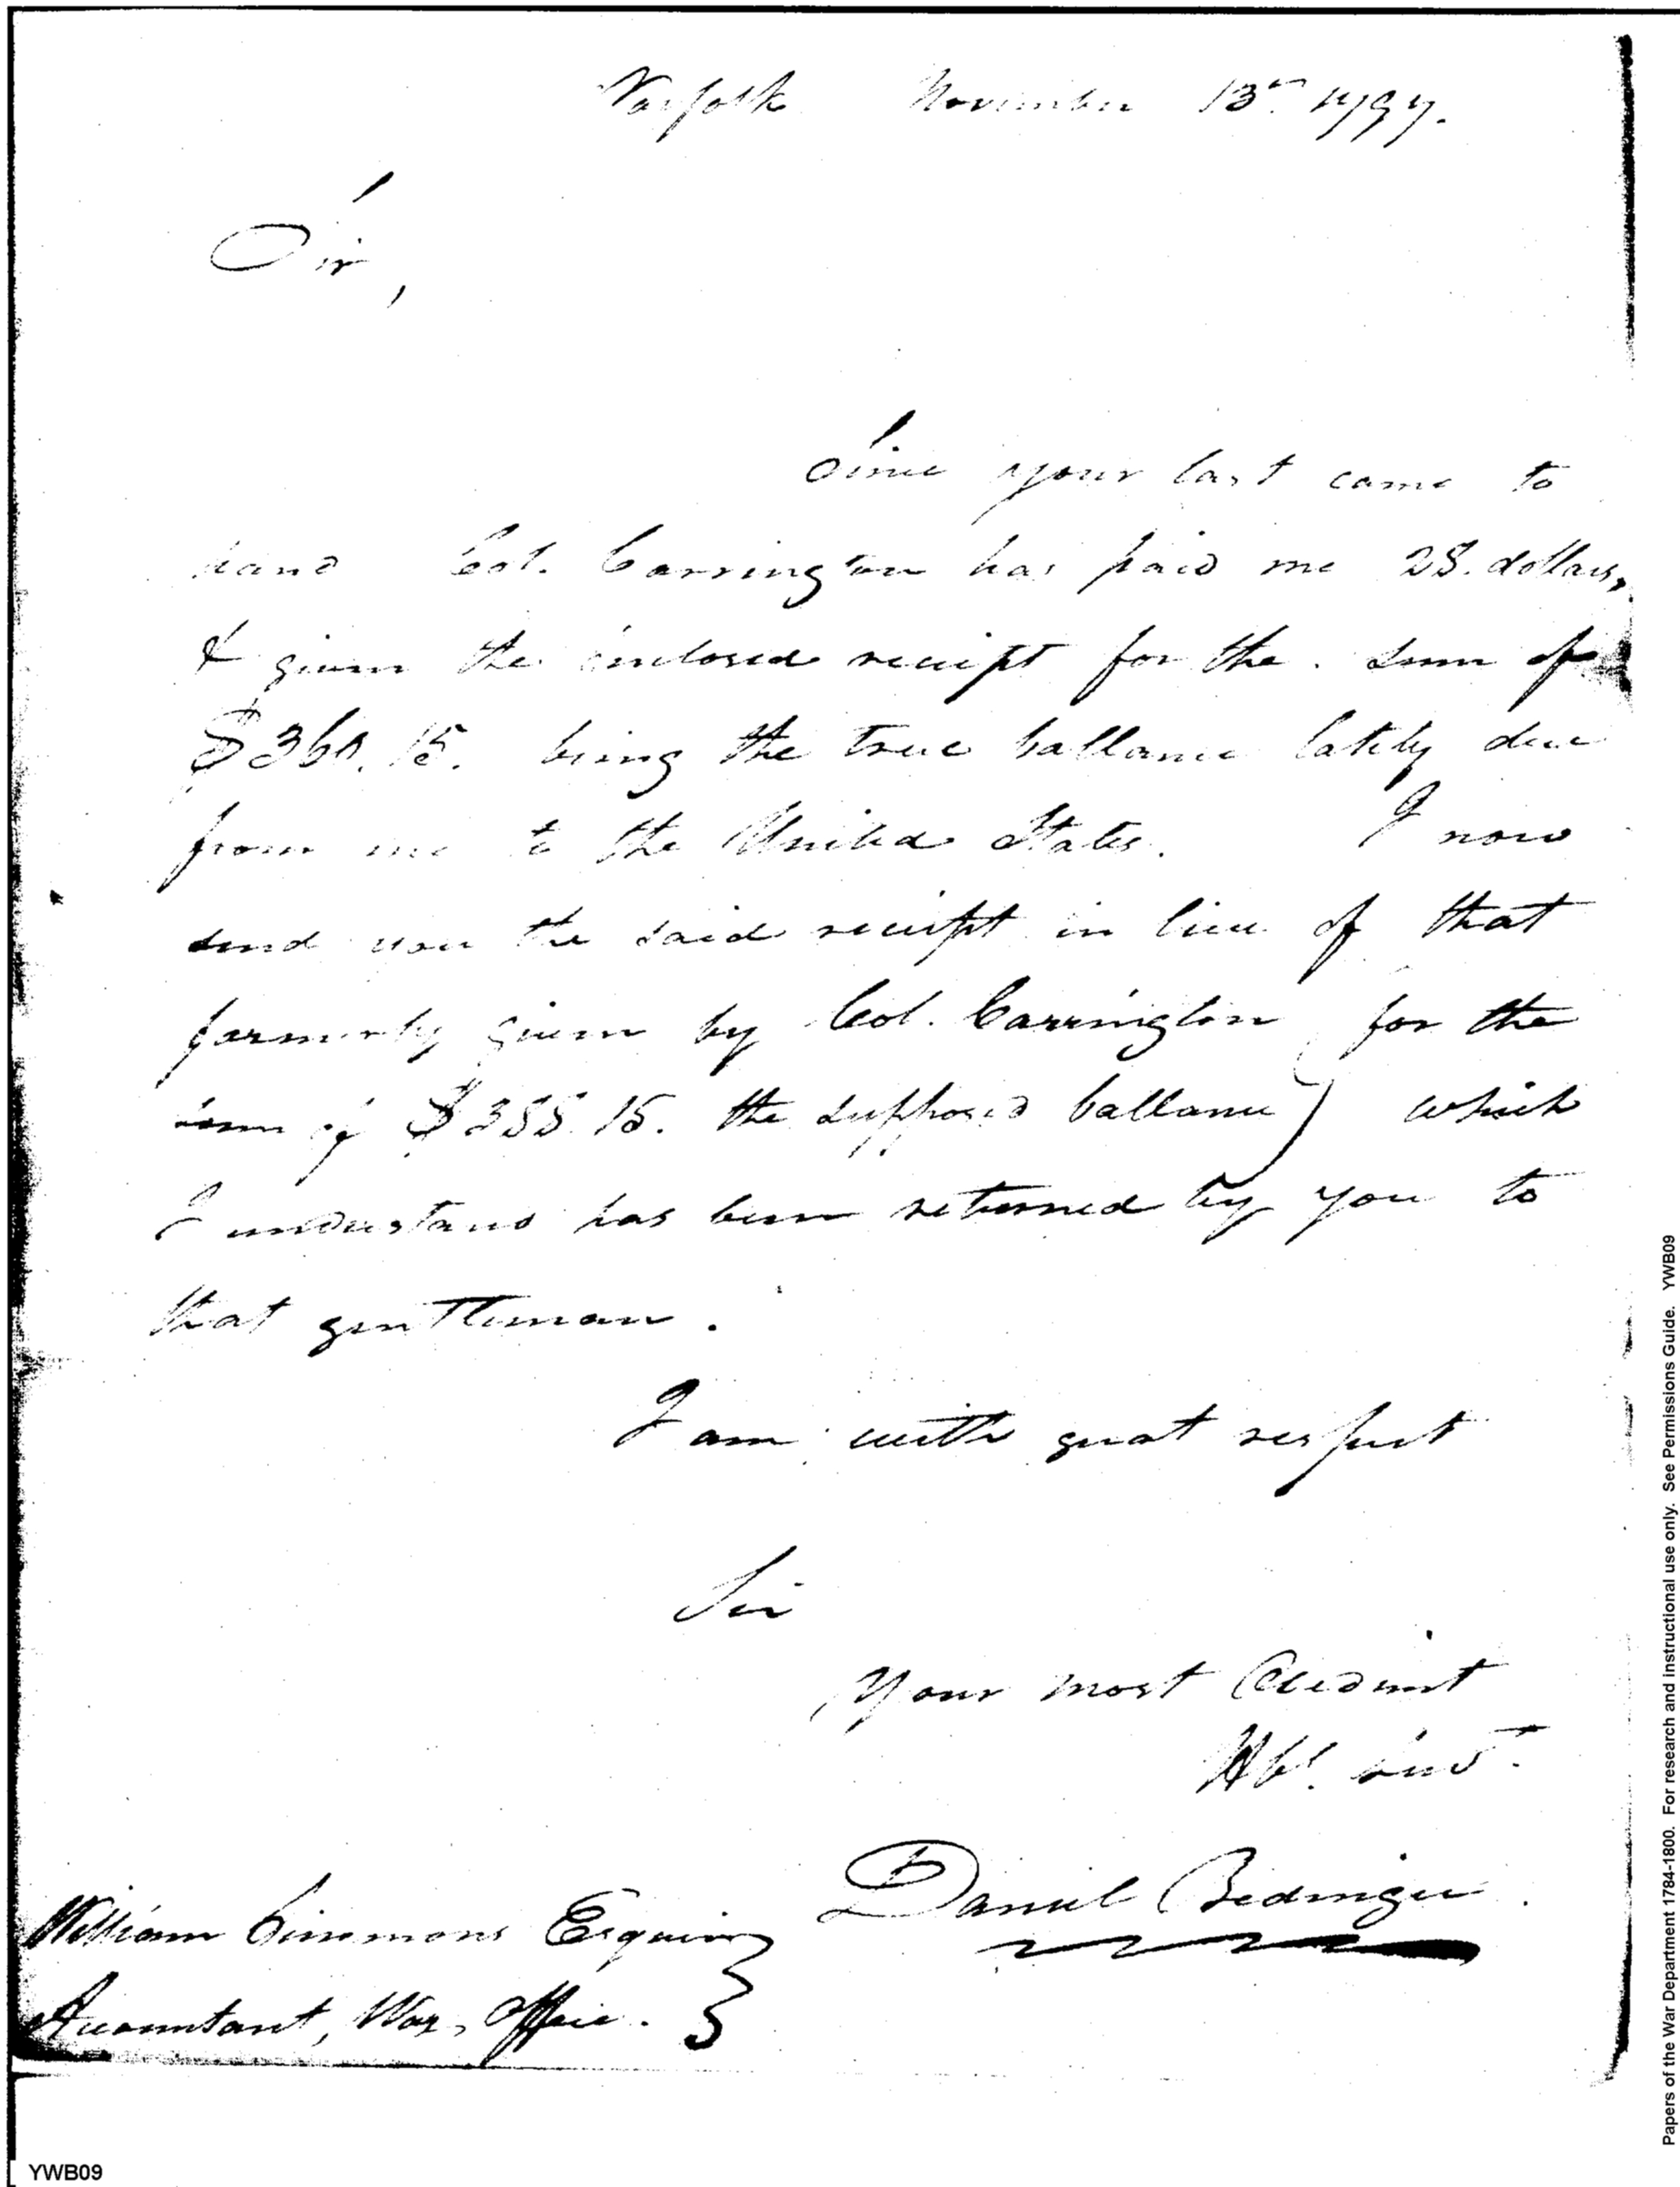 Norfolk November 13th 1797.
Sir,
Since your last came to
hand Col. Carrington has paid me 28. dollars,
& given the enclosed receipt for the sum of
$360.15. being the true ballance lately due
from me to the United States. I now
send you the said receipt in lieu of that
formerly given by Col. Carrington (for the
sum of $388.15. the supposed ballance) which
I understand has been returned by you to
that gentleman.
I am with great respect
Sir
Your most Obedient
Hbl. servt.
Daniel Bedinger.
William Simmons Esquire
Accountant, War Office.
Papers of the War Department 1784-1800. For research and instructional use only. See Permissions Guide. YWB09
YWB09